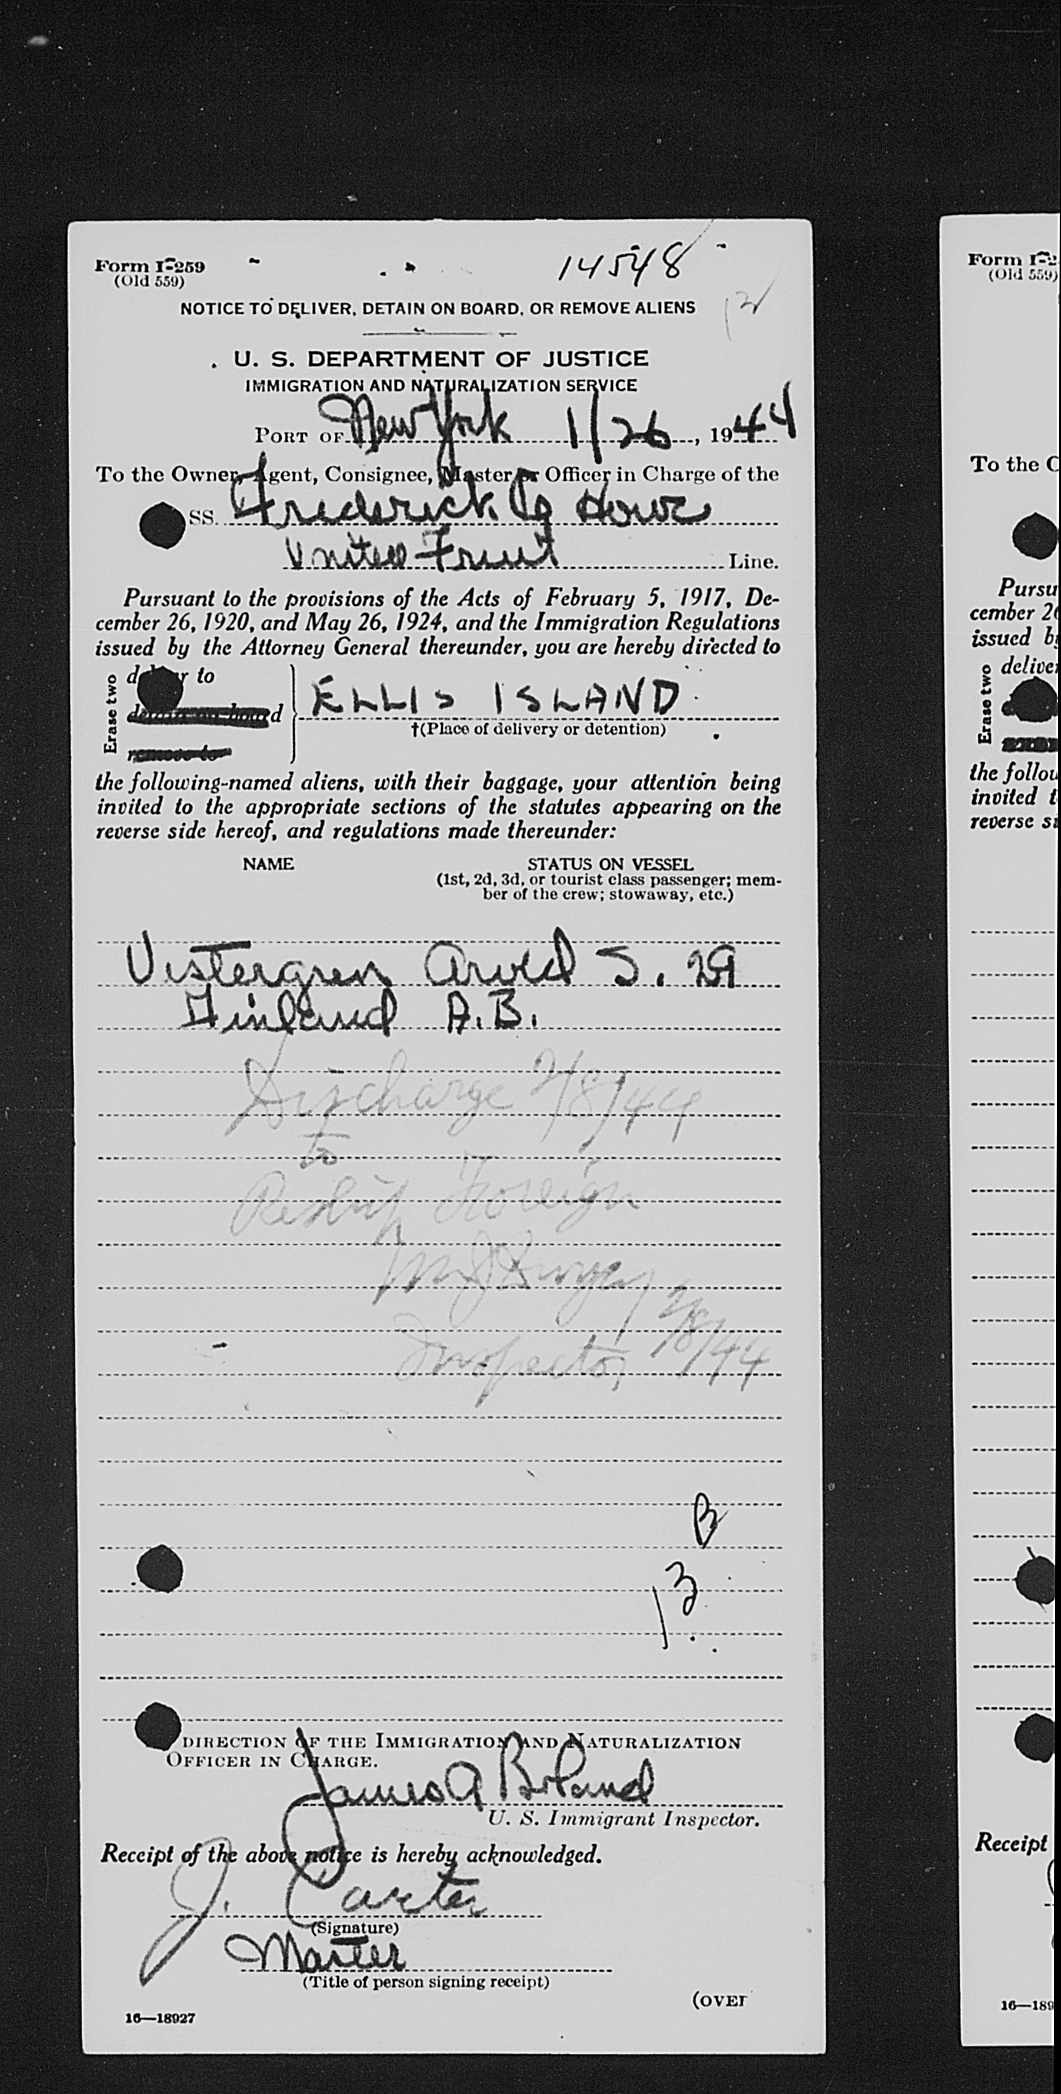 Form I-259
(Old 559)
14548
12
NOTICE TO DELIVER, DETAIN ON BOARD, OR REMOVE ALIENS
U. S. DEPARTMENT OF JUSTICE
IMMIGRATION AND NATURALIZATION SERVICE
PORT OF New York 1/26, 1944
To the Owner, Agent, Consignee, Master or Officer in Charge of the
SS. Frederick C Howe
United Fruit Line.
Pursuant to the provisions of the Acts of February 5, 1917, De-
cember 26, 1920, and May 26, 1924, and the Immigration Regulations
issued by the Attorney General thereunder, you are hereby directed to
Erase two
deliver to
detain on board
remove to
ELLIS ISLAND
†(Place of delivery or detention)
the following-named aliens, with their baggage, your attention being
invited to the appropriate sections of the statutes appearing on the
reverse side hereof, and regulations made thereunder:
NAME STATUS ON VESSEL
(1st, 2d, 3d, or tourist class passenger; mem-
ber of the crew; stowaway, etc.)
Vestergren Arvid S. 29
Finland A.B.
Discharge 2/8/44
to
Reship Foreign
Inspector 2/8/44
B
13
DIRECTION OF THE IMMIGRATION AND NATURALIZATION
OFFICER IN CHARGE.
James A Boland
U. S. Immigrant Inspector.
Receipt of the above notice is hereby acknowledged.
J. Carter
(Signature)
Master
(Title of person signing receipt)
(OVER
16—18927
Form I-2
(Old 559)
To the O
Pursu
cember 26
issued by
Erase two
deliver
the follow
invited t
reverse si
Receipt
16—189